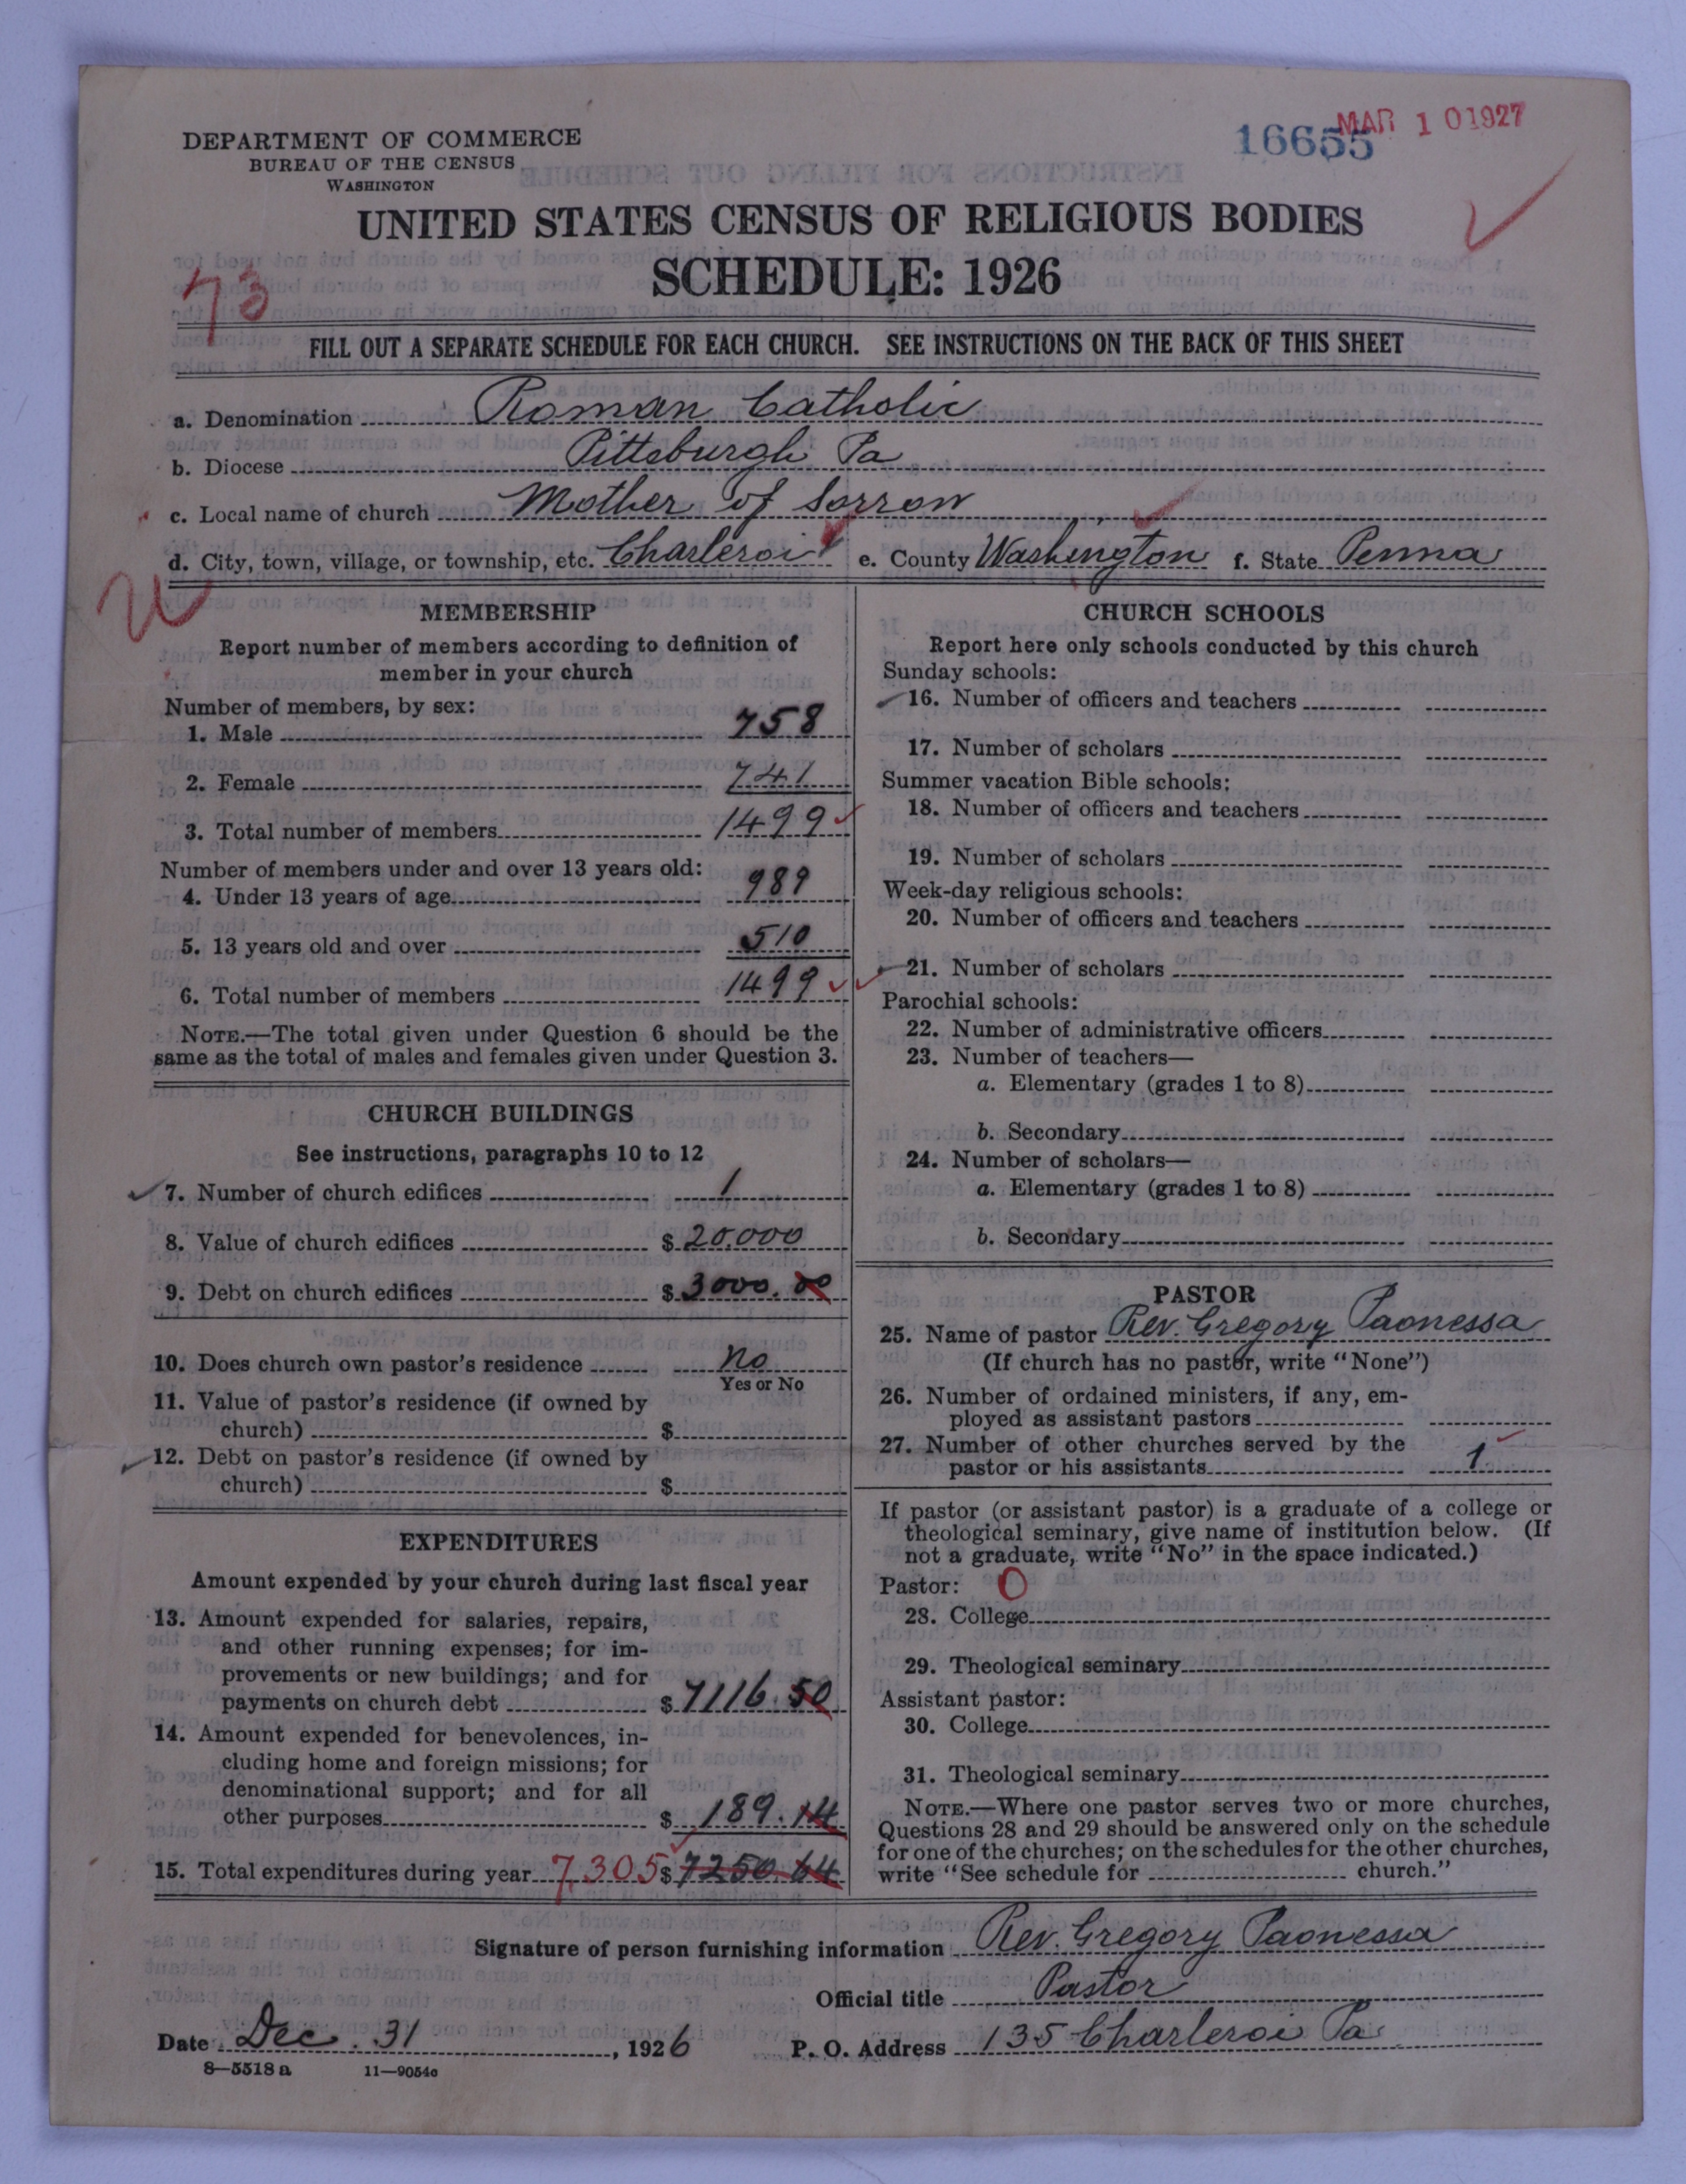 DEPARTMENT OF COMMERCE
BUREAU OF THE CENSUS
WASHINGTON
16655
MAR 1 0 1927
UNITED STATES CENSUS OF RELIGIOUS BODIES
SCHEDULE: 1926
73
FILL OUT A SEPARATE SCHEDULE FOR EACH CHURCH. SEE INSTRUCTIONS ON THE BACK OF THIS SHEET
a. Denomination Roman Catholic
b. Diocese Pittsburgh Pa
c. Local name of church Mother of Sorrow
d. City, town, village, or township, etc. Charleroi e. County Washington f. State Penna
MEMBERSHIP
Report number of members according to definition of
member in your church
Number of members, by sex:
1. Male 758
2. Female 741
3. Total number of members 1499
Number of members under and over 13 years old:
4. Under 13 years of age 989
5. 13 years old and over 510
6. Total number of members 1499
NOTE.—The total given under Question 6 should be the
same as the total of males and females given under Question 3.
CHURCH BUILDINGS
See instructions, paragraphs 10 to 12
7. Number of church edifices 1
8. Value of church edifices $ 20.000
9. Debt on church edifices $ 3000.00
10. Does church own pastor's residence no
Yes or No
11. Value of pastor's residence (if owned by
church) $
12. Debt on pastor's residence (if owned by
church) $
EXPENDITURES
Amount expended by your church during last fiscal year
13. Amount expended for salaries, repairs,
and other running expenses; for im-
provements or new buildings; and for
payments on church debt $ 7116.50
14. Amount expended for benevolences, in-
cluding home and foreign missions; for
denominational support; and for all
other purposes $ 189.14
15. Total expenditures during year 7,305 $ 7250.64
CHURCH SCHOOLS
Report here only schools conducted by this church
Sunday schools:
16. Number of officers and teachers
17. Number of scholars
Summer vacation Bible schools:
18. Number of officers and teachers
19. Number of scholars
Week-day religious schools:
20. Number of officers and teachers
21. Number of scholars
Parochial schools:
22. Number of administrative officers
23. Number of teachers—
a. Elementary (grades 1 to 8)
b. Secondary
24. Number of scholars—
a. Elementary (grades 1 to 8)
b. Secondary
PASTOR
25. Name of pastor Rev. Gregory Paonessa
(If church has no pastor, write "None")
26. Number of ordained ministers, if any, em-
ployed as assistant pastors
27. Number of other churches served by the
pastor or his assistants 1
If pastor (or assistant pastor) is a graduate of a college or
theological seminary, give name of institution below. (If
not a graduate, write "No" in the space indicated.)
Pastor: 0
28. College
29. Theological seminary
Assistant pastor:
30. College
31. Theological seminary
NOTE.—Where one pastor serves two or more churches,
Questions 28 and 29 should be answered only on the schedule
for one of the churches; on the schedules for the other churches,
write "See schedule for church."
Signature of person furnishing information Rev. Gregory Paonessa
Official title Pastor
Date Dec. 31, 1926 P. O. Address 135 Charleroi Pa
8—5518 a 11—9054c